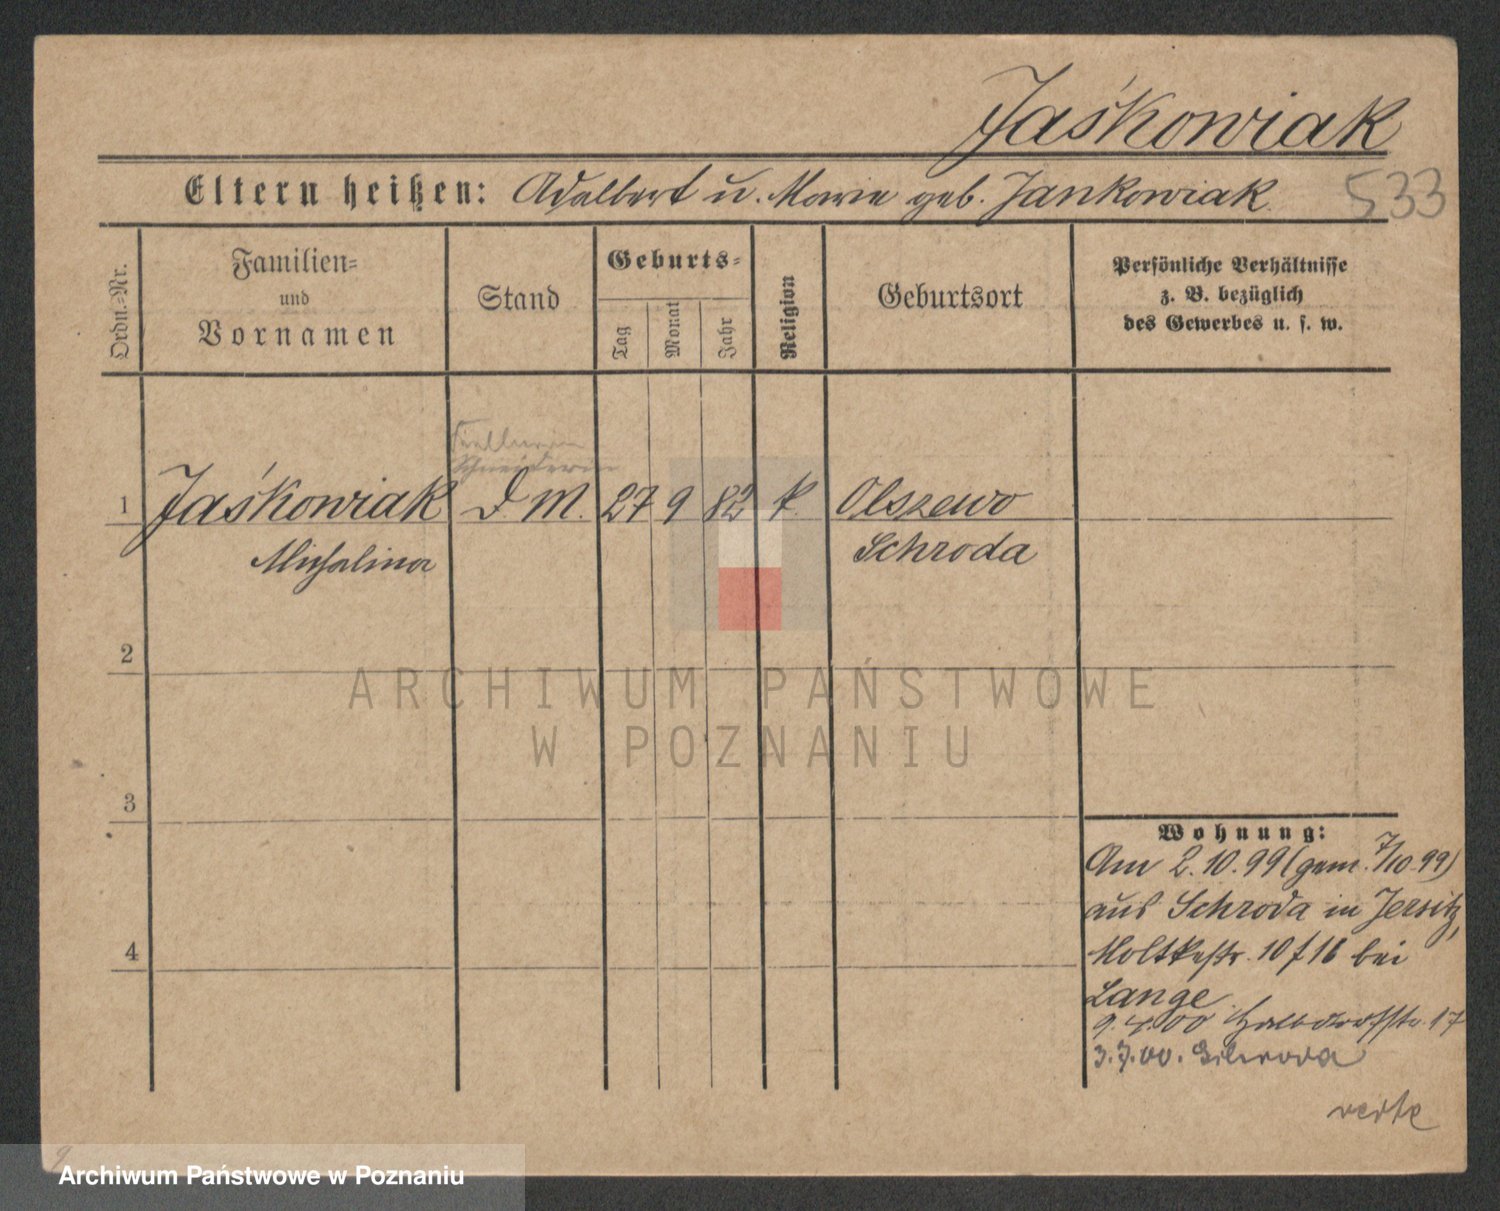 Jaśkowiak
Eltern heißen: Adalbert u. Marie geb. Jankowiak
533
Ordn.-Nr.
Familien-
und
Vornamen
Stand
Geburts-
Tag
Monat
Jahr
Religion
Geburtsort
Persönliche Verhältnisse
z. B. bezüglich
des Gewerbes u. s. w.
Schneiderin
1 Jaśkowiak D. M. 27 9 82 k. Olszewo
Michalina Schroda
2
ARCHIWUM PAŃSTWOWE
W POZNANIU
3
4
Wohnung:
Am 2.10.99 (gem. 7/10.99)
aus Schroda in Jersitz,
Moltkestr. 10 bei
Lange
9.4.00 Halbdorfstr. 17
3.7.00. Schroda
verte
Archiwum Państwowe w Poznaniu